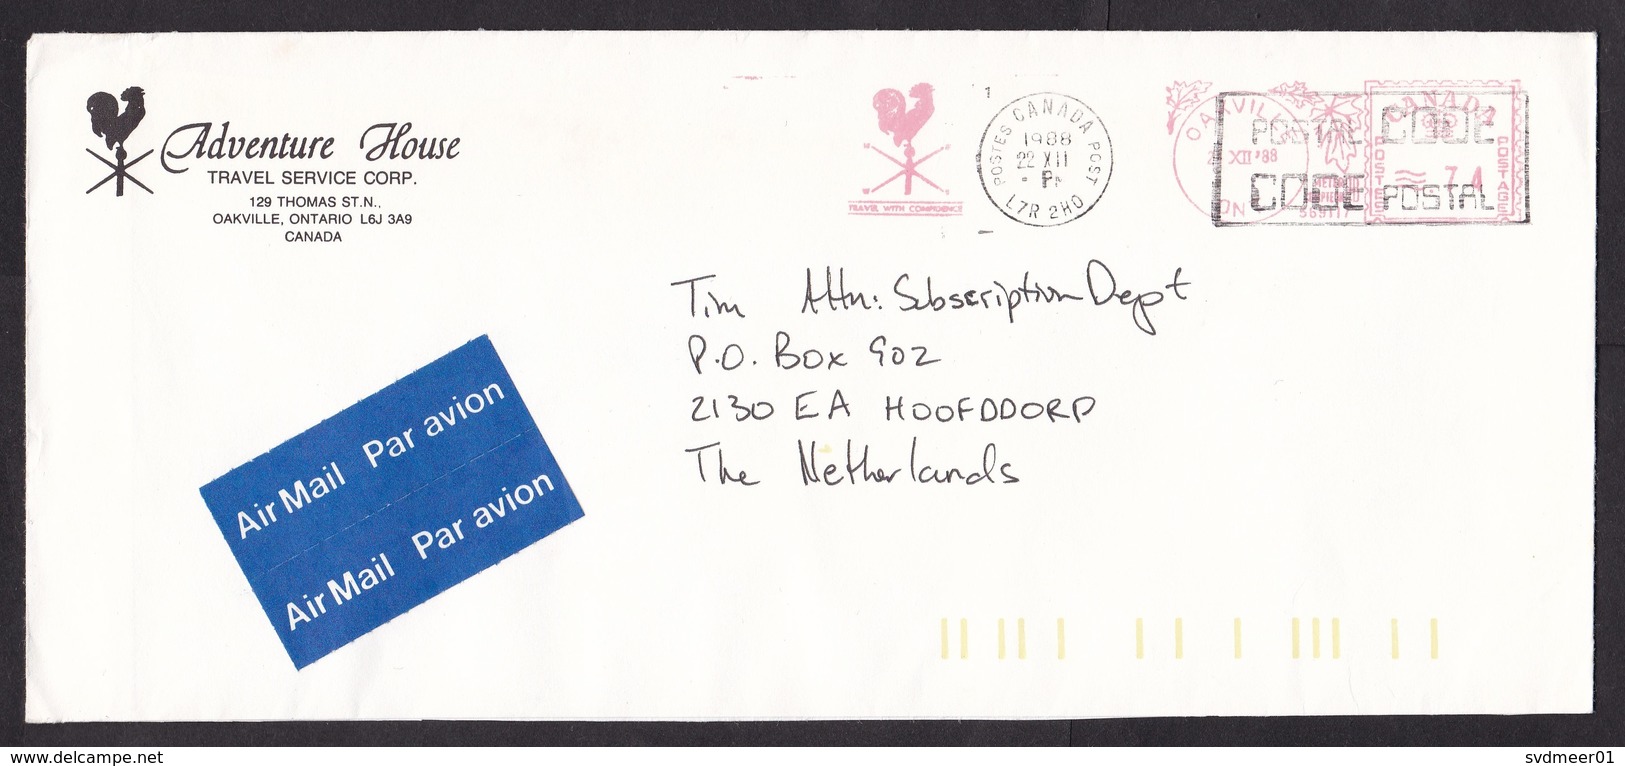 Adventure House
TRAVEL SERVICE CORP.
129 THOMAS ST.N.,
OAKVILLE, ONTARIO L6J 3A9
CANADA
TRAVEL WITH CONFIDENCE
1
POSTES CANADA POST
1988
22 XII
L7R 2H0
XII '88
ON
POSTAL CODE
CODE POSTAL
CANADA
POSTES
POSTAGE
74
Tim Attn: Subscription Dept
P.O. Box 902
2130 EA HOOFDDORP
The Netherlands
Air Mail Par avion
Air Mail Par avion
delcampe.net
svdmeer01